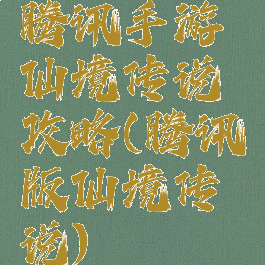 腾讯手游
仙境传说
攻略(腾讯
版仙境传
说)